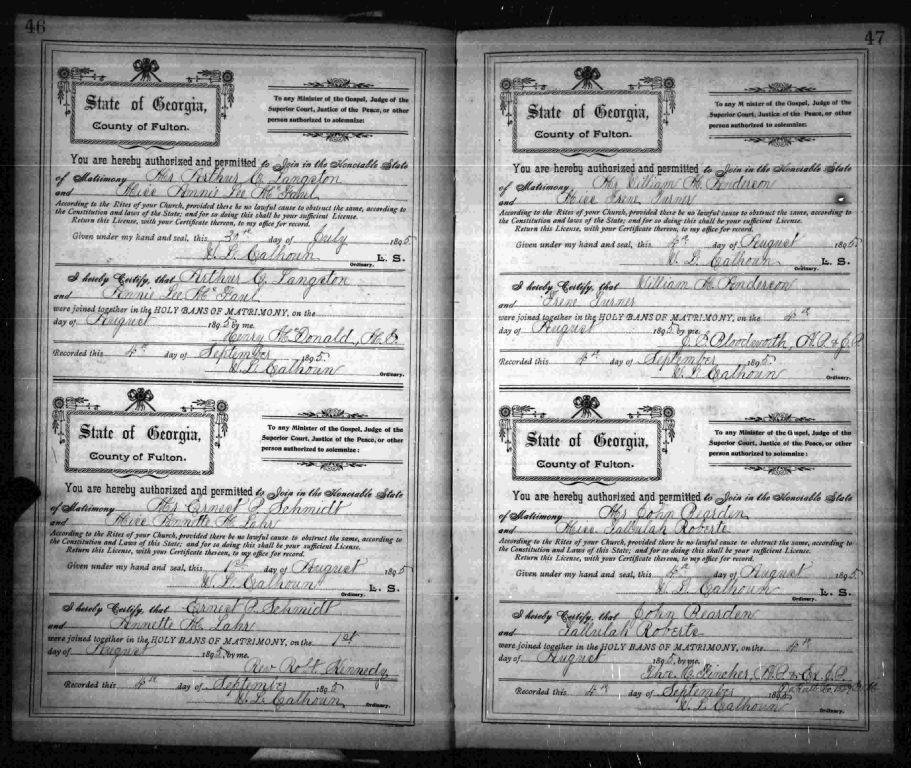 46
State of Georgia,
County of Fulton.
To any Minister of the Gospel, Judge of the
Superior Court, Justice of the Peace, or other
person authorized to solemnize:
You are hereby authorized and permitted to Join in the Honorable State
of Matrimony Mr Arthur C. Langston
and Miss Annie Lee McFaul
According to the Rites of your Church, provided there be no lawful cause to obstruct the same, according to
the Constitution and laws of the State; and for so doing this shall be your sufficient License.
Return this License, with your Certificate thereon, to my office for record.
Given under my hand and seal, this 30th day of July 1895
W. L. Calhoun L. S.
Ordinary.
I hereby Certify, that Arthur C. Langston
and Annie Lee McFaul
were joined together in the HOLY BANS OF MATRIMONY, on the
day of August 1895 by me.
Henry McDonald, M.G.
Recorded this 4th day of September 1895
W. L. Calhoun
Ordinary.
State of Georgia,
County of Fulton.
To any Minister of the Gospel, Judge of the
Superior Court, Justice of the Peace, or other
person authorized to solemnize:
You are hereby authorized and permitted to Join in the Honorable State
of Matrimony Mr Ernest P. Schmidt
and Miss Annette M. Lahr
According to the Rites of your Church, provided there be no lawful cause to obstruct the same, according to
the Constitution and Laws of this State; and for so doing this shall be your sufficient License.
Return this License, with your Certificate thereon, to my office for record.
Given under my hand and seal, this 1st day of August 1895
W. L. Calhoun L. S.
Ordinary.
I hereby Certify, that Ernest P. Schmidt
and Annette M. Lahr
were joined together in the HOLY BANS OF MATRIMONY, on the 1st
day of August 1895, by me.
Rev Robt Kennedy
Recorded this 4th day of September 1895
W. L. Calhoun
Ordinary.
47
State of Georgia,
County of Fulton.
To any Minister of the Gospel, Judge of the
Superior Court, Justice of the Peace, or other
person authorized to solemnize:
You are hereby authorized and permitted to Join in the Honorable State
of Matrimony Mr William H. Anderson
and Miss Irene Turner
According to the Rites of your Church, provided there be no lawful cause to obstruct the same, according to
the Constitution and laws of the State; and for so doing this shall be your sufficient License.
Return this License, with your Certificate thereon, to my office for record.
Given under my hand and seal, this 4th day of August 1895
W. L. Calhoun L. S.
Ordinary.
I hereby Certify, that William H. Anderson
and Irene Turner
were joined together in the HOLY BANS OF MATRIMONY, on the 4th
day of August 1895 by me.
J. C. Bloodworth, N.P. & J.P.
Recorded this 4th day of September 1895
W. L. Calhoun
Ordinary.
State of Georgia,
County of Fulton.
To any Minister of the Gospel, Judge of the
Superior Court, Justice of the Peace, or other
person authorized to solemnize:
You are hereby authorized and permitted to Join in the Honorable State
of Matrimony Mr John Rearden
and Miss Tallulah Roberts
According to the Rites of your Church, provided there be no lawful cause to obstruct the same, according to
the Constitution and Laws of this State; and for so doing this shall be your sufficient License.
Return this License, with your Certificate thereon, to my office for record.
Given under my hand and seal, this 4th day of August 1895
W. L. Calhoun L. S.
Ordinary.
I hereby Certify, that John Rearden
and Tallulah Roberts
were joined together in the HOLY BANS OF MATRIMONY, on the 4th
day of August 1895, by me.
C. Fincher, N.P. & Ex J.P.
Recorded this 4th day of September 1895
W. L. Calhoun
Ordinary.